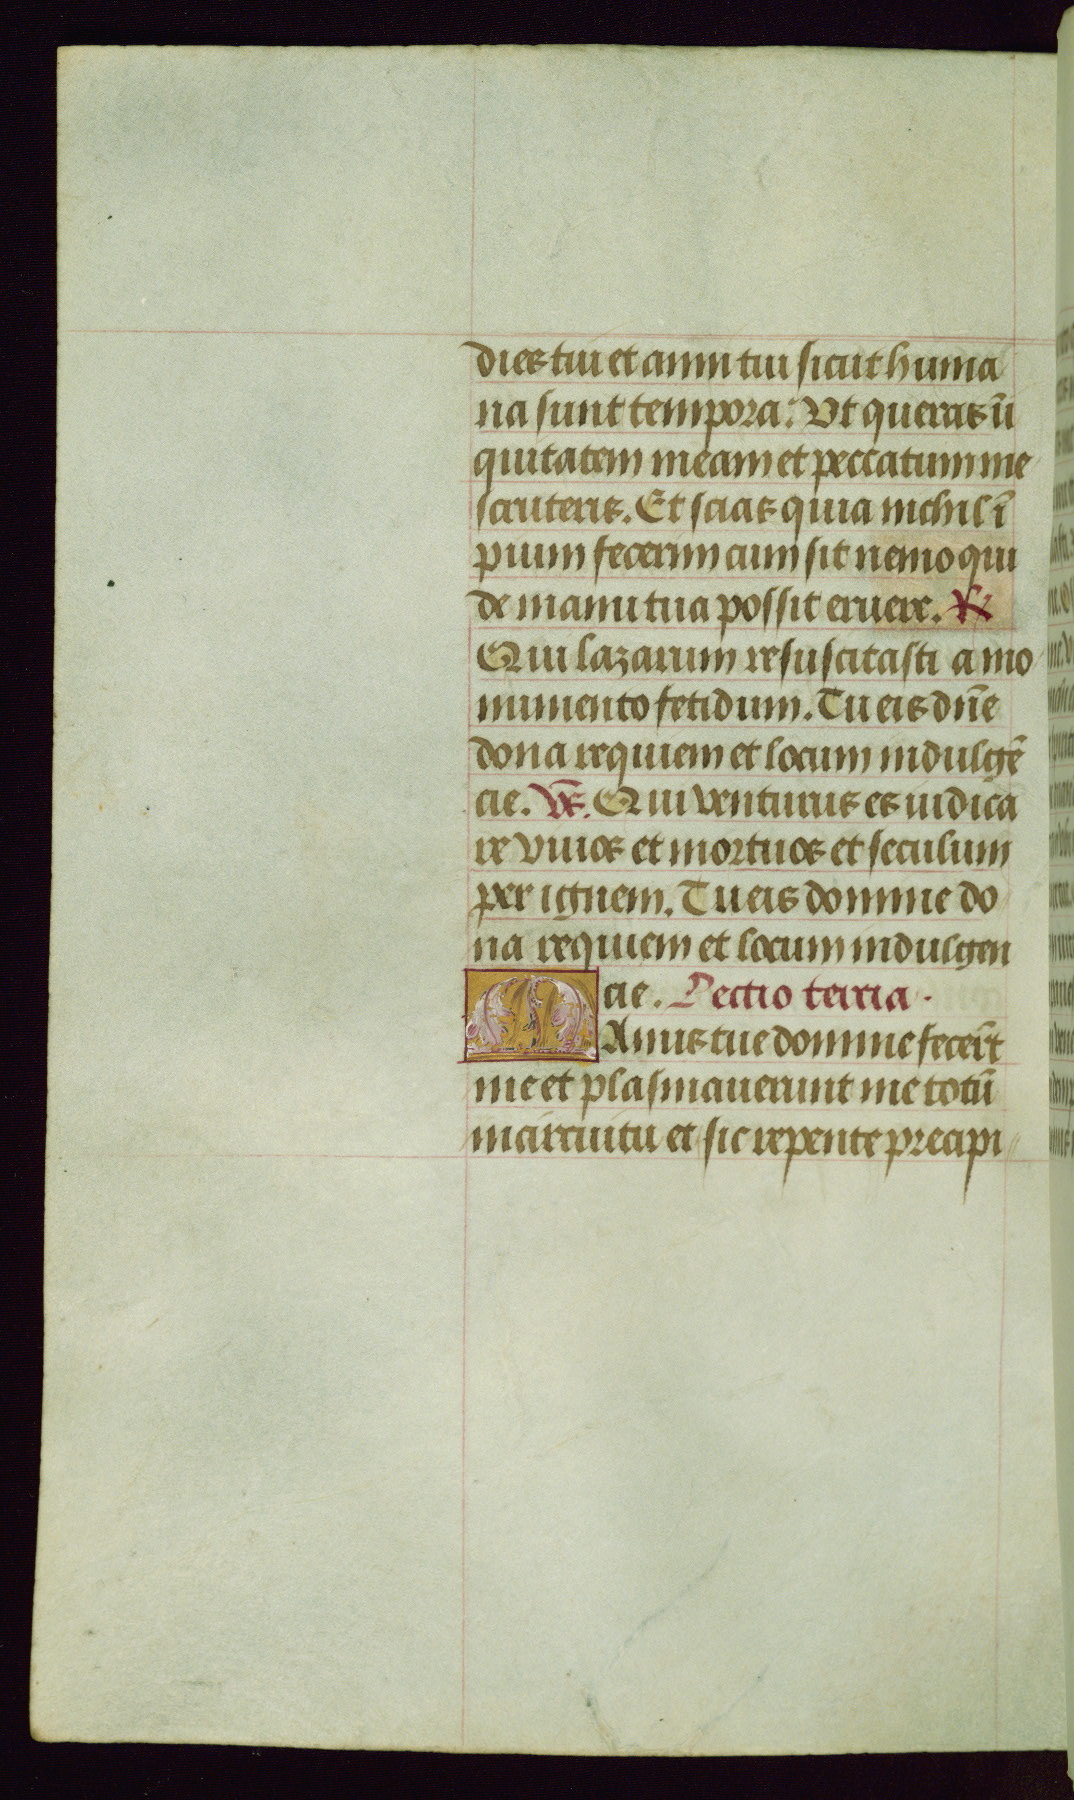 dies tui et anni tui sicut huma
na sunt tempora. Ut queras ini
quitatem meam et peccatum me
scruteris. Et scias quia nichil ī
pium fecerim cum sit nemo qui
de manu tua possit eruere. ℟
Qui lazarum resuscitasti a mo
numento fetidum. Tu eis dn̄e
dona requiem et locum indulgē
cie. ℣s. Qui venturus es iudica
re vivos et mortuos et seculum
per ignem. Tu eis domine do
na requiem et locum indulgen
cie. Lectio tercia.
Manus tue domine fecer̄t
me et plasmaverunt me totū
in circuitu et sic repente precipi